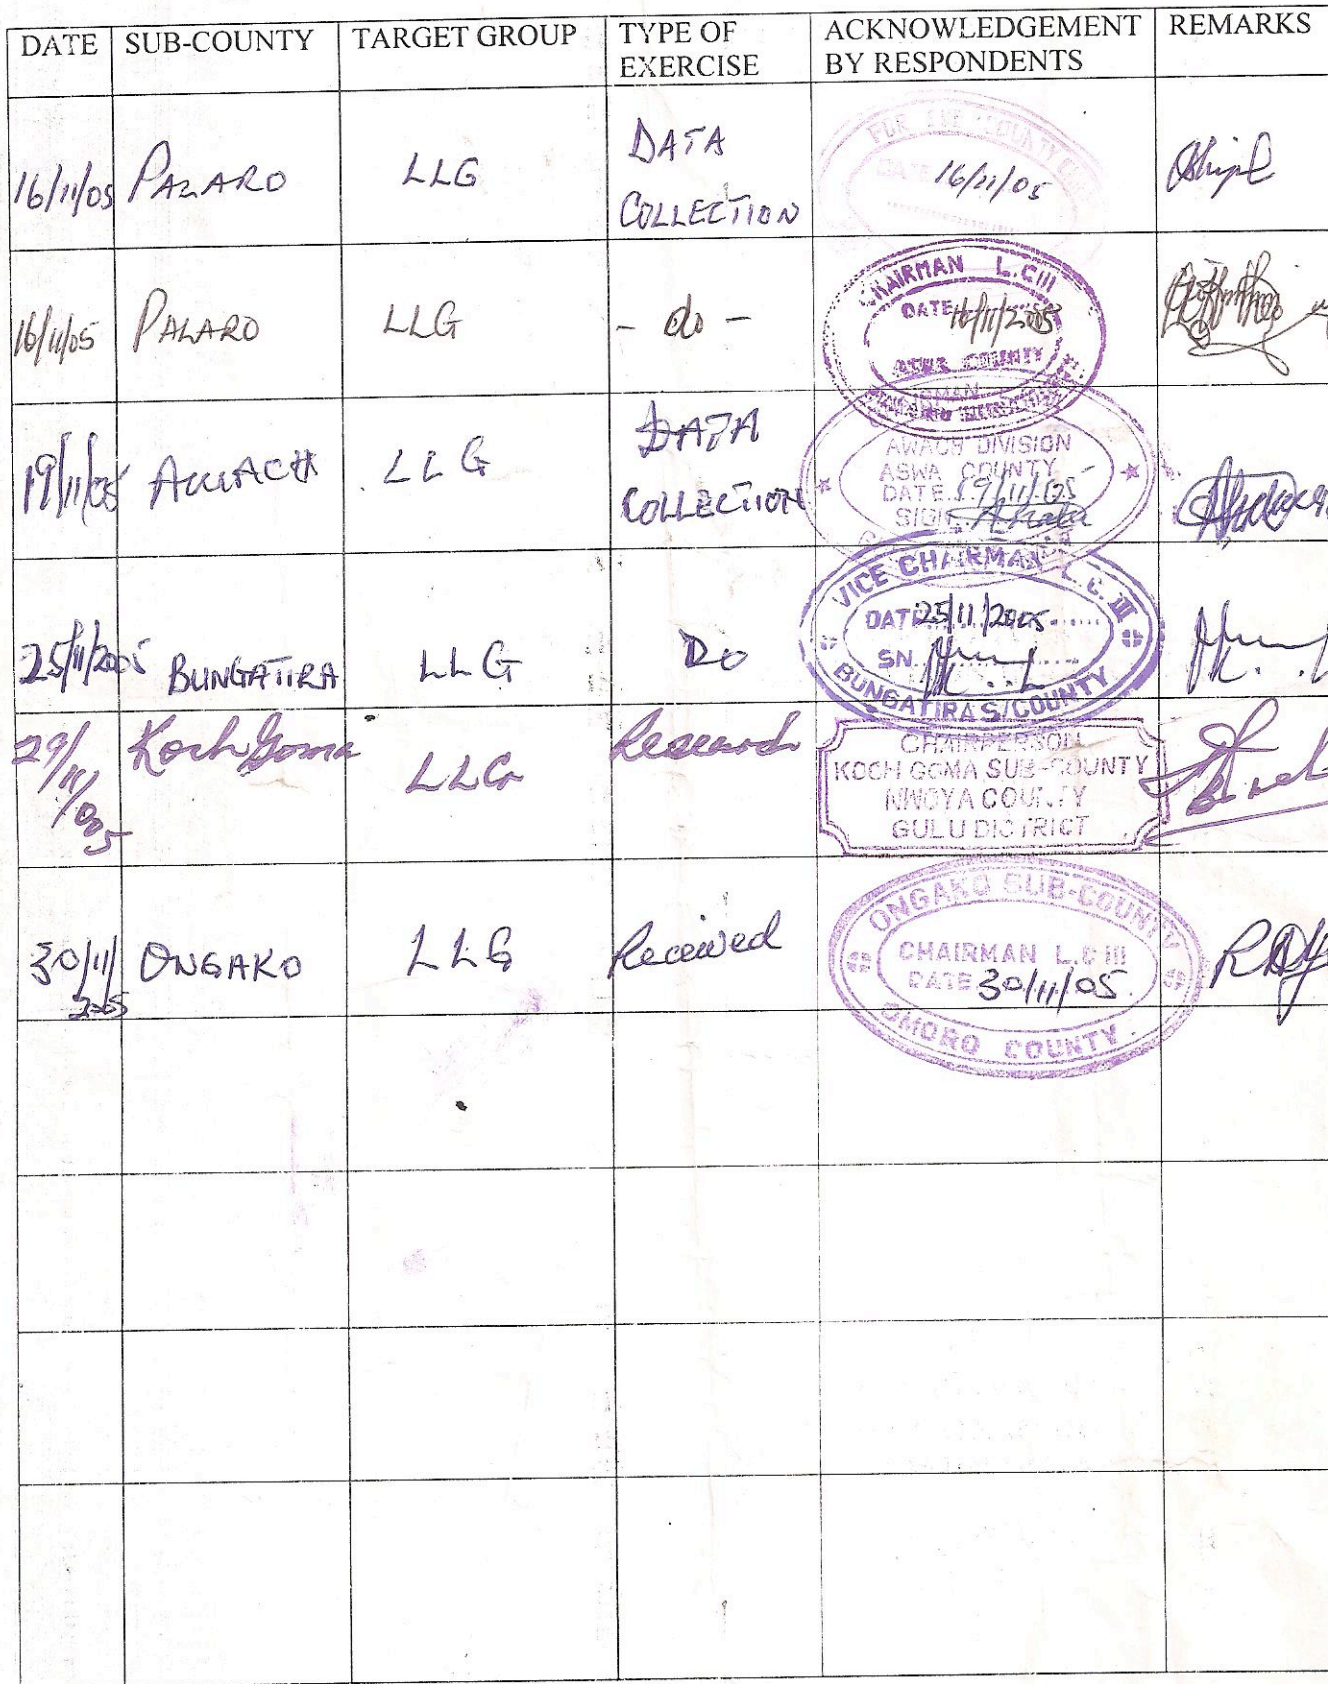 DATE SUB-COUNTY TARGET GROUP TYPE OF EXERCISE ACKNOWLEDGEMENT BY RESPONDENTS REMARKS
16/11/05 PALARO LLG DATA COLLECTION
FOR SUB COUNTY
DATE 16/11/05
16/11/05 PALARO LLG - do -
CHAIRMAN L.C III
DATE 16/11/2005
COUNTY
19/11/05 AWACH LLG DATA COLLECTION
AWACH DIVISION
ASWA COUNTY
DATE 19/11/05
SIGN
25/11/2005 BUNGATIRA LLG Do
VICE CHAIRMAN L.C. III
DATE 25/11/2005
SN
BUNGATIRA S/COUNTY
29/11/005 Koch Goma LLG Research
CHAIRPERSON
KOCH GOMA SUB-COUNTY
NWOYA COUNTY
GULU DISTRICT
30/11/2005 ONGAKO LLG Received
ONGAKO SUB-COUNTY
CHAIRMAN L.C III
DATE 30/11/05
OMORO COUNTY